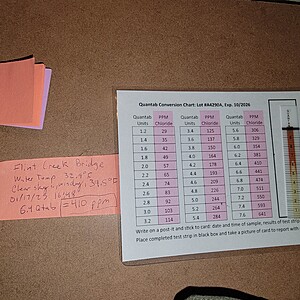 Quantab Conversion Chart: Lot #A4290A, Exp. 10/2026
Quantab Units PPM Chloride Quantab Units PPM Chloride Quantab Units PPM Chloride
1.2 29 3.4 125 5.6 306
1.4 35 3.6 137 5.8 329
1.6 42 3.8 150 6.0 354
1.8 49 4.0 164 6.2 381
2.0 57 4.2 178 6.4 410
2.2 65 4.4 193 6.6 441
2.4 74 4.6 209 6.8 474
2.6 83 4.8 226 7.0 511
2.8 92 5.0 244 7.2 550
3.0 103 5.2 264 7.4 593
3.2 114 5.4 284 7.6 642
Write on a post-it and stick to card: date and time of sample, results of test
Place completed test strip in black box and take a picture of card to report with
Flint Creek Bridge
Water Temp 32.9°F
Clear sky
6.4 Qtab = 410 ppm